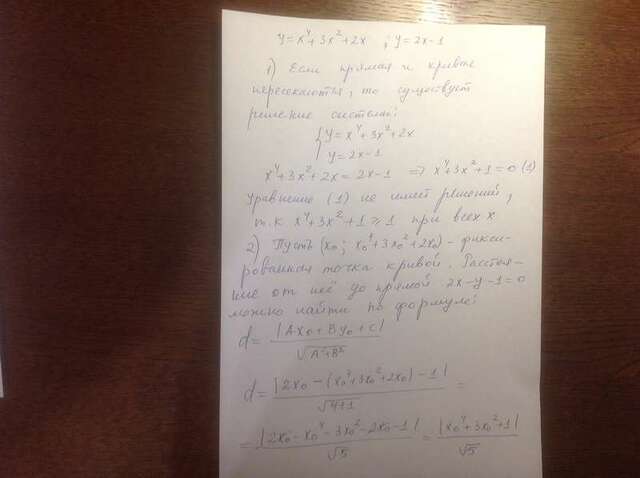 y=x⁴+3x²+2x ; y=2x-1
1) Если прямая и кривые
пересекаются, то существует
решение системы:
{y=x⁴+3x²+2x
y=2x-1
x⁴+3x²+2x=2x-1 ⇒ x⁴+3x²+1=0 (1)
Уравнение (1) не имеет решений,
т.к x⁴+3x²+1⩾1 при всех x
2) Пусть (x₀; x₀⁴+3x₀²+2x₀) - фикси-
рованная точка кривой. Расстоя-
ние от неё до прямой 2x-y-1=0
можно найти по формуле:
d= |Ax₀+By₀+C| / √(A²+B²)
d= |2x₀-(x₀⁴+3x₀²+2x₀)-1| / √(4+1) =
= |2x₀-x₀⁴-3x₀²-2x₀-1| / √5 = |x₀⁴+3x₀²+1| / √5